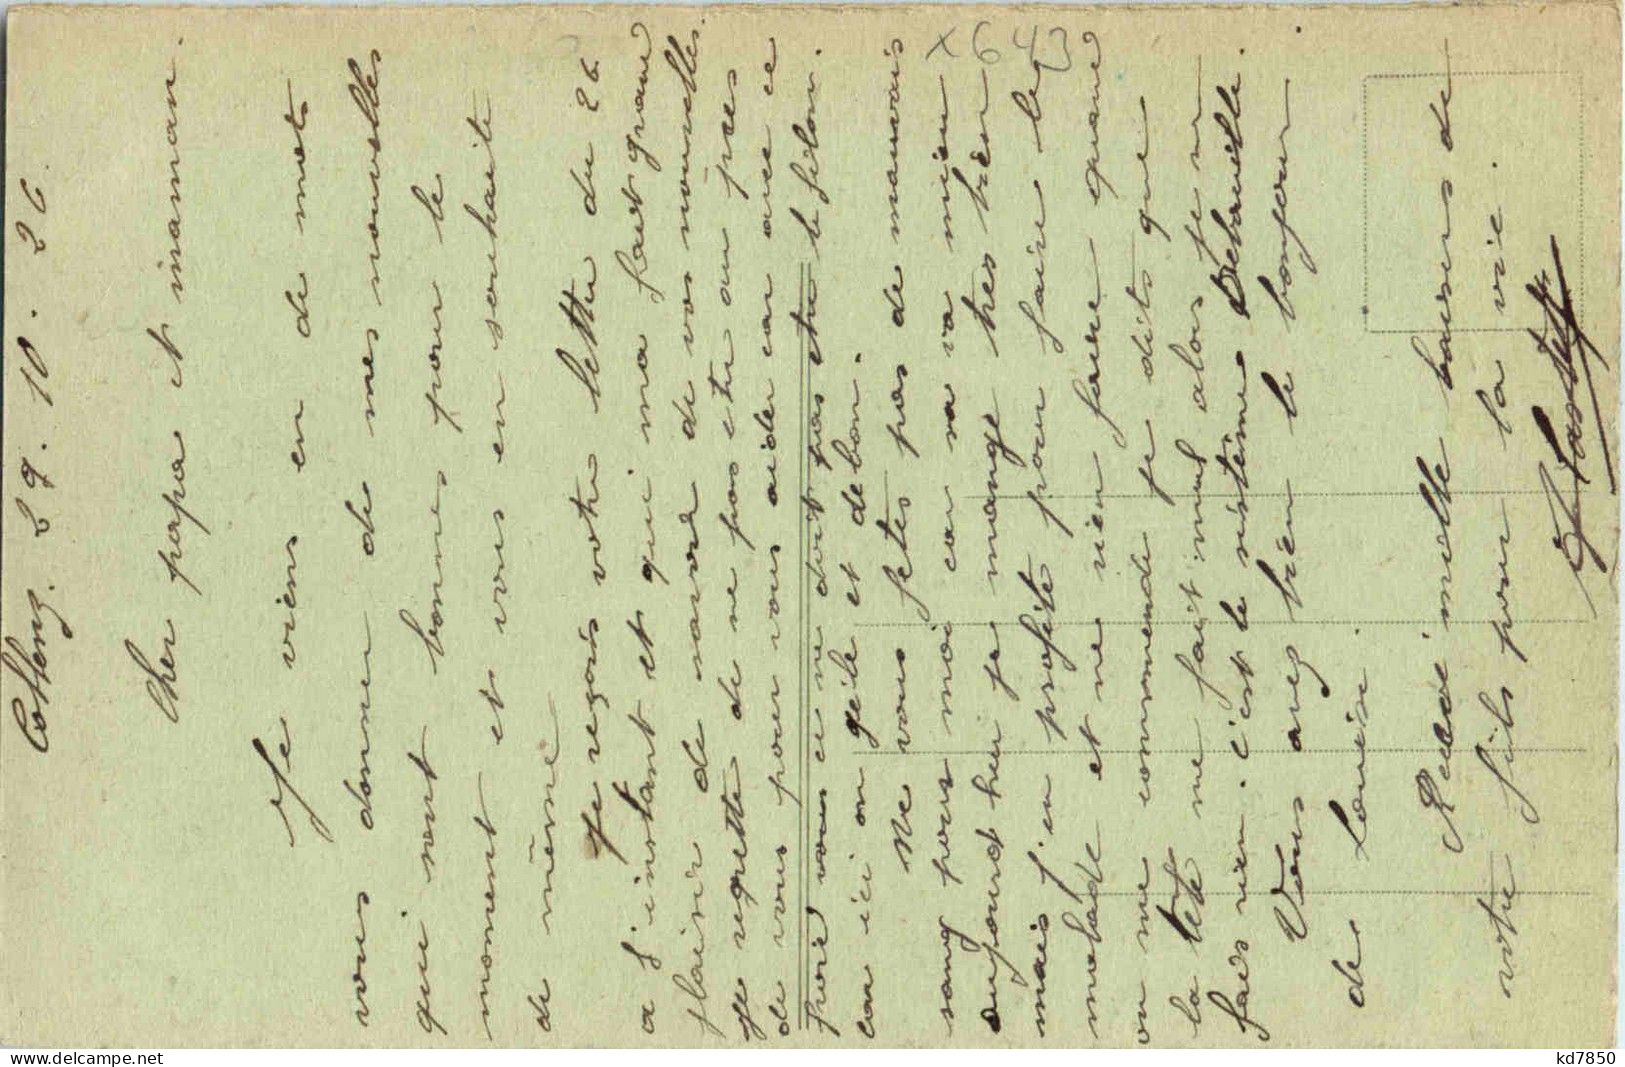 Coblenz. 29. 10. 26.
Cher papa et maman.
Je viens en de mots
vous donner de mes nouvelles
qui sont bonnes pour le
moment et vous en souhaite
de même
Je reçois votre lettre du 26
a j'instant et qui ma fait grand
plaisir de savoir de vos nouvelles.
je regrette de ne pas etre au pres
de vous pour vous aider car avec ce
froid vous ce ne doit pas etre le filon.
car ici on gèle et de bon.
Ne vous fetes pas de mauvais
sang pour moi car sa va mieu
aujourd'hui je mange tres bien
mais j'en profite pour faire le
malade et ne rien faire quand
on me commende je dits que
la tête me fait mal alors je n
fais rien. c'est le sistème Debrouille.
Vous avez bien le bonjour
de Louise.
Recevé mille baisers de
votre fils pour la vie.
x 643
kd7850